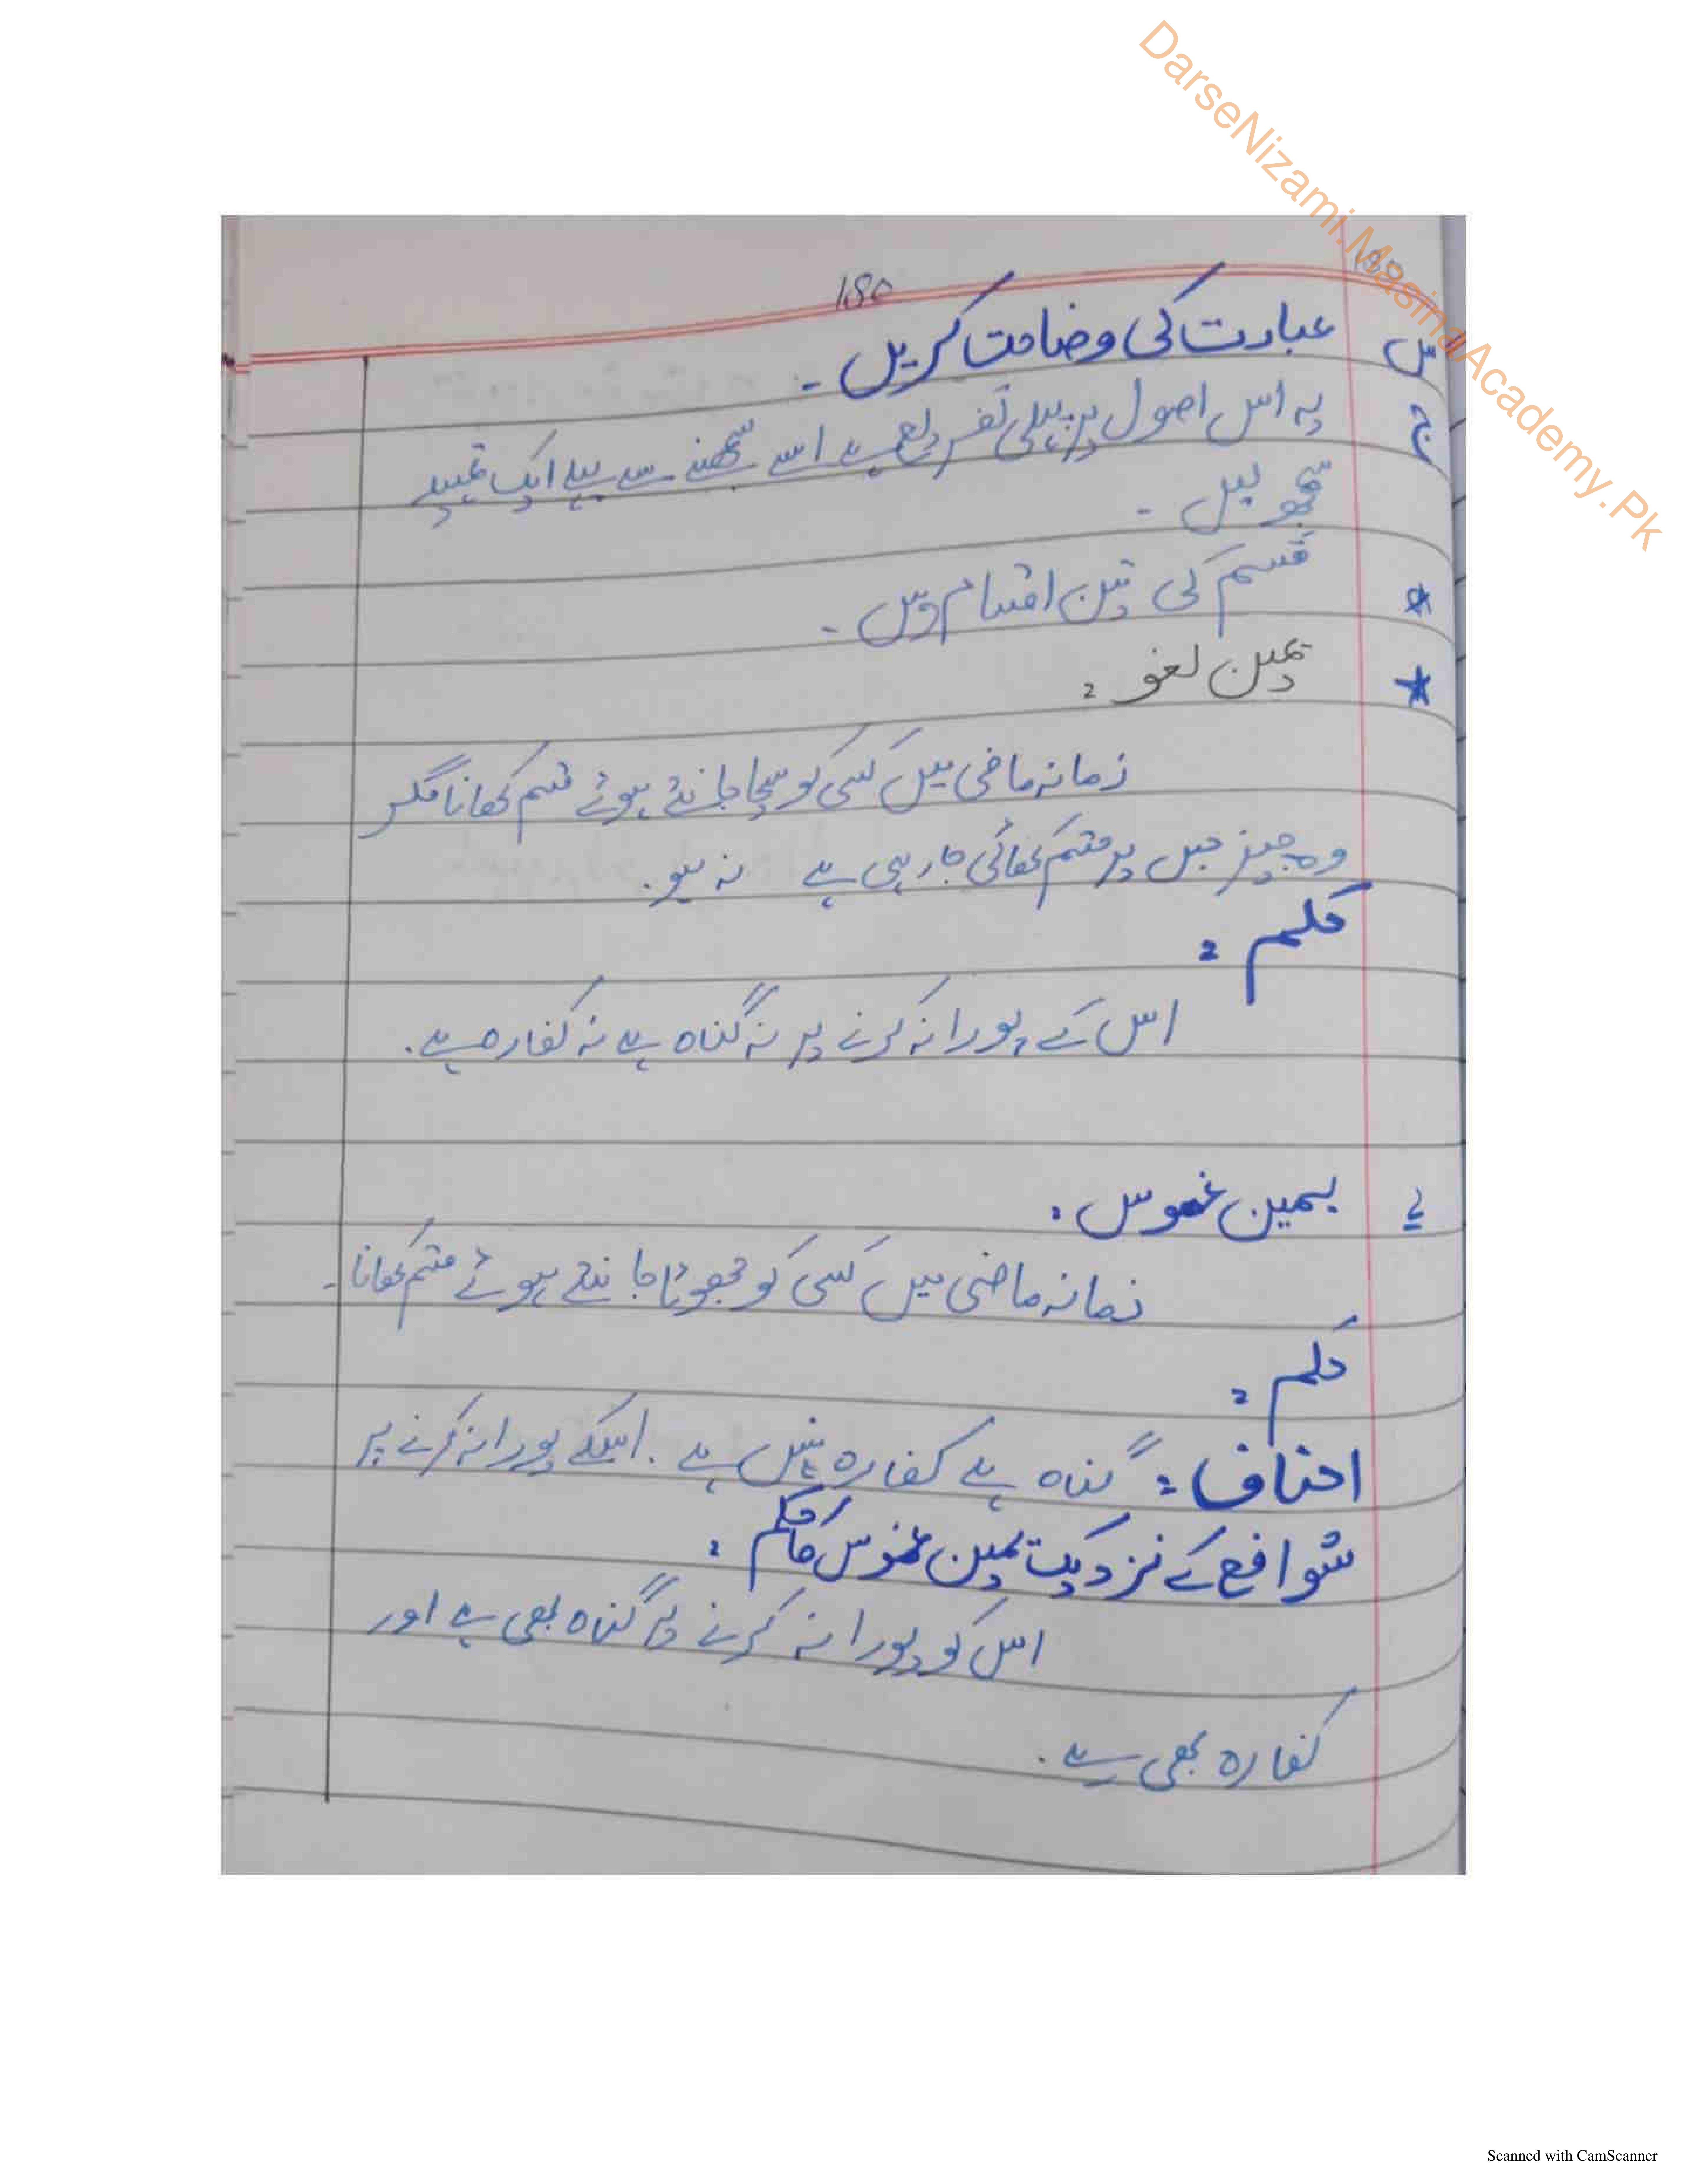 DarseNizami.MasinaAcademy.Pk
180
س عبارت کی وضاحت کریں ۔
ج یہ اس اصول پر پہلی تفریع ہے اسے سمجھنے سے پہلے ایک تمہید
سمجھ لیں ۔
قسم کی تین اقسام ہیں ۔
یمین لغو :
زمانہ ماضی میں کسی کو سچا جانتے ہوئے قسم کھانا مگر
وہ چیز جس پر قسم کھائی جا رہی ہے نہ ہو ۔
حکم :
اس کے پورا نہ کرنے پر نہ گناہ ہے نہ کفارہ ہے ۔
یمین غموس :
زمانہ ماضی میں کسی کو جھوٹا جانتے ہوئے قسم کھانا ۔
حکم :
احناف : گناہ ہے کفارہ نہیں ہے ۔ اسکے پورا نہ کرنے پر
شوافع کے نزدیک یمین غموس کا حکم :
اس کو پورا نہ کرنے پر گناہ بھی ہے اور
کفارہ بھی ہے ۔
Scanned with CamScanner